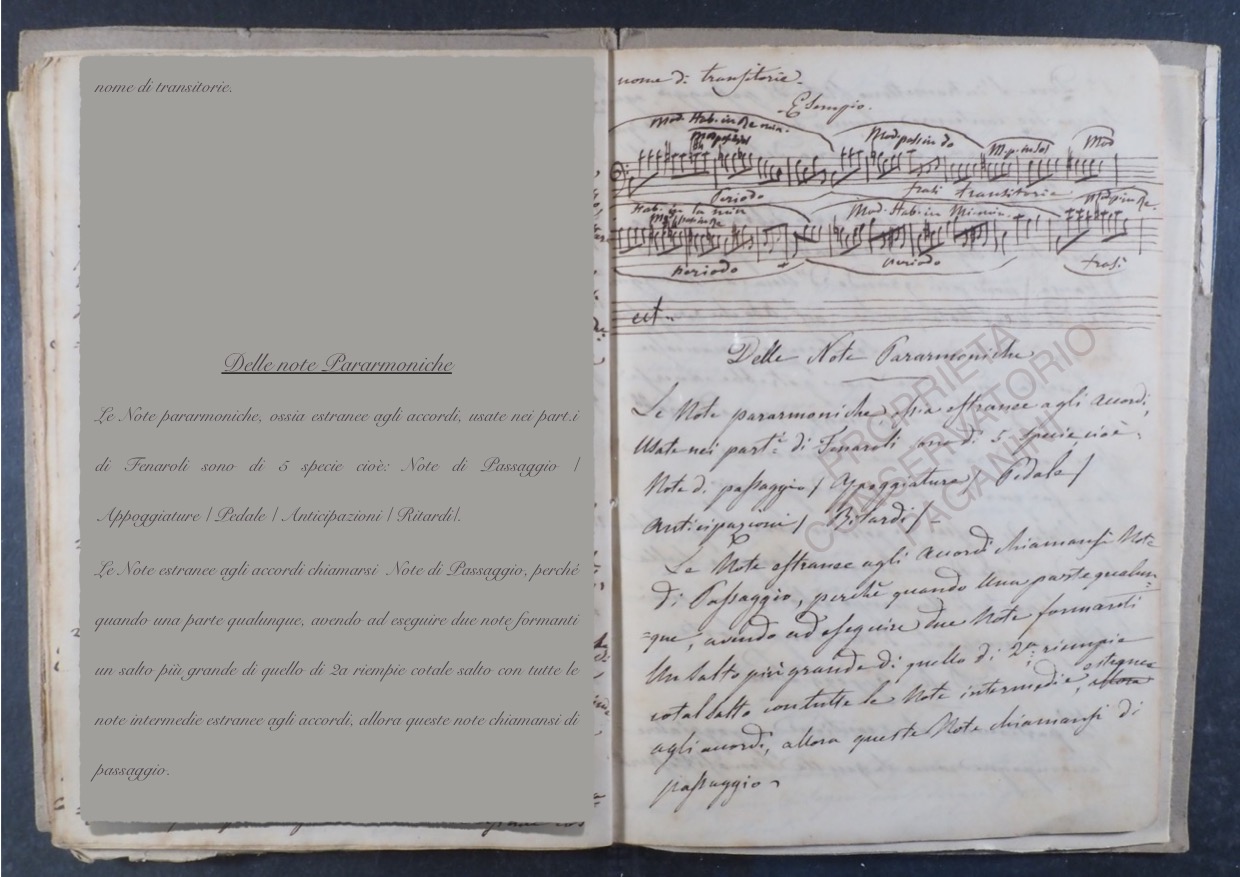 nome di transitorie.
Delle note Pararmoniche
Le Note pararmoniche, ossia estranee agli accordi, usate nei part.i
di Fenaroli sono di 5 specie cioè: Note di Passaggio |
Appoggiature | Pedale | Anticipazioni | Ritardi|.
Le Note estranee agli accordi chiamarsi Note di Passaggio, perché
quando una parte qualunque, avendo ad eseguire due note formanti
un salto più grande di quello di 2a riempie cotale salto con tutte le
note intermedie estranee agli accordi, allora queste note chiamansi di
passaggio.
nome di transitorie.
Esempio.
Mod. Hab. in Re min.
Mod. pass in do
M. p. in sol
Mod
Periodo
frasi transitorie
Hab. in la min
Mod. Hab. in Mi min.
Mod. p. in Re.
periodo
periodo
frasi
ect..
Delle Note Pararmoniche
Le Note pararmoniche ossia estranee agli accordi,
Usate nei part.i di Fenaroli sono di 5 specie cioè:
Note di passaggio / Apoggiature / Pedale /
Anticipazioni / Ritardi /
Le Note estranee agli accordi chiamansi Note
di Passaggio, perchè quando Una parte qualun=
=que, avendo ad eseguire due Note formanti
Un salto più grande di quello di 2a: riempie
cotal salto con tutte le Note intermedie, estranee
agli accordi, allora queste Note chiamansi di
passaggio
PROPRIETA'
CONSERVATORIO
PAGANINI